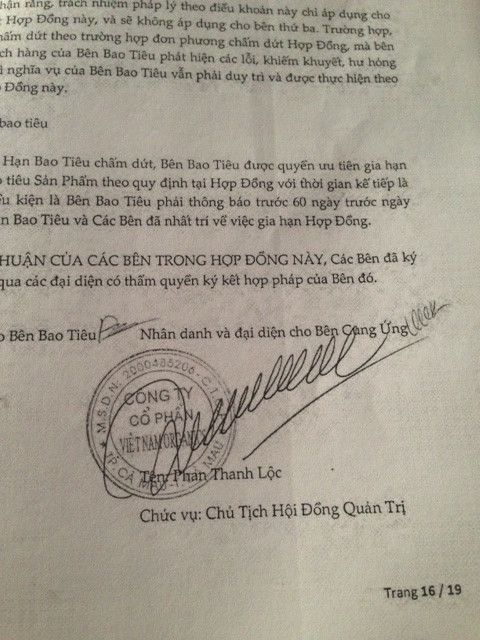 nhận rằng, trách nhiệm pháp lý theo điều khoản này chỉ áp dụng cho
Hợp Đồng này, và sẽ không áp dụng cho bên thứ ba. Trường hợp,
chấm dứt theo trường hợp đơn phương chấm dứt Hợp Đồng, mà bên
hàng của Bên Bao Tiêu phát hiện các lỗi, khiếm khuyết, hư hỏng
nghĩa vụ của Bên Bao Tiêu vẫn phải duy trì và được thực hiện theo
Đồng này.
bao tiêu
Hạn Bao Tiêu chấm dứt, Bên Bao Tiêu được quyền ưu tiên gia hạn
tiêu Sản Phẩm theo quy định tại Hợp Đồng với thời gian kế tiếp là
kiện là Bên Bao Tiêu phải thông báo trước 60 ngày trước ngày
Bao Tiêu và Các Bên đã nhất trí về việc gia hạn Hợp Đồng.
THUẬN CỦA CÁC BÊN TRONG HỢP ĐỒNG NÀY, Các Bên đã ký
qua các đại diện có thẩm quyền ký kết hợp pháp của Bên đó.
Bên Bao Tiêu Nhân danh và đại diện cho Bên Cung Ứng
M.S.D.N: 2000485206
CÔNG TY
CỔ PHẦN
VIỆT NAM ORGANICS
TP. CÀ MAU - T. CÀ MAU
Tên: Phan Thanh Lộc
Chức vụ: Chủ Tịch Hội Đồng Quản Trị
Trang 16 / 19